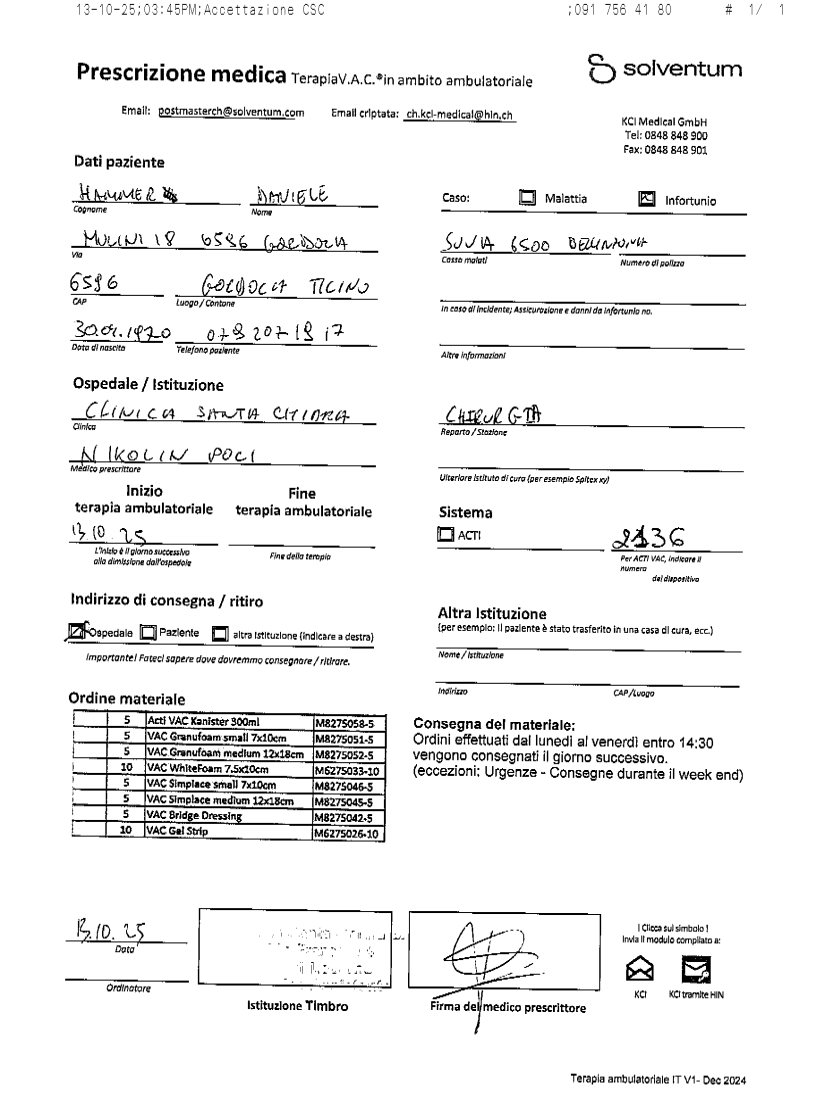 13-10-25;03:45PM;Accettazione CSC ;091 756 41 80 # 1/ 1
Prescrizione medica TerapiaV.A.C.®in ambito ambulatoriale
solventum
Email: postmasterch@solventum.com Email criptata: ch.kci-medical@hin.ch
KCI Medical GmbH
Tel: 0848 848 900
Fax: 0848 848 901
Dati paziente
HAMMER DANIELE
Cognome Nome
Caso: Malattia Infortunio
MULINI 18 6596 GORDOLA
Via
SUVA 6500 BELLINZONA
Cassa malati Numero di polizza
6596 GORDOLA TICINO
CAP Luogo / Cantone
In caso di incidente; Assicurazione e danni da infortunio no.
30.01.1970 079 207 19 17
Data di nascita Telefono paziente
Altre informazioni
Ospedale / Istituzione
CLINICA SANTA CHIARA
Clinica
CHIRURGIA
Reparto / Stazione
NIKOLIN POCI
Medico prescrittore
Ulteriore istituto di cura (per esempio Spitex xy)
Inizio terapia ambulatoriale
Fine terapia ambulatoriale
13.10.25
L'inizio è il giorno successivo
alla dimissione dall'ospedale
Fine della terapia
Sistema
ACTI 2136
Per ACTI VAC, indicare il
numero
del dispositivo
Indirizzo di consegna / ritiro
Ospedale Paziente altra istituzione (indicare a destra)
Importante! Fateci sapere dove dovremmo consegnare / ritirare.
Altra Istituzione
(per esempio: il paziente è stato trasferito in una casa di cura, ecc.)
Nome / Istituzione
Indirizzo CAP/Luogo
Ordine materiale
5 Acti VAC Kanister 300ml M8275058-5
5 VAC Granufoam small 7x10cm M8275051-5
5 VAC Granufoam medium 12x18cm M8275052-5
10 VAC WhiteFoam 7.5x10cm M6275033-10
5 VAC Simplace small 7x10cm M8275046-5
5 VAC Simplace medium 12x18cm M8275045-5
5 VAC Bridge Dressing M8275042-5
10 VAC Gel Strip M6275026-10
Consegna del materiale:
Ordini effettuati dal lunedì al venerdì entro 14:30
vengono consegnati il giorno successivo.
(eccezioni: Urgenze - Consegne durante il week end)
13.10.25
Data
Ordinatore
Istituzione Timbro
Firma del medico prescrittore
! Clicca sul simbolo !
Invia il modulo compilato a:
KCI KCI tramite HIN
Terapia ambulatoriale IT V1- Dec 2024